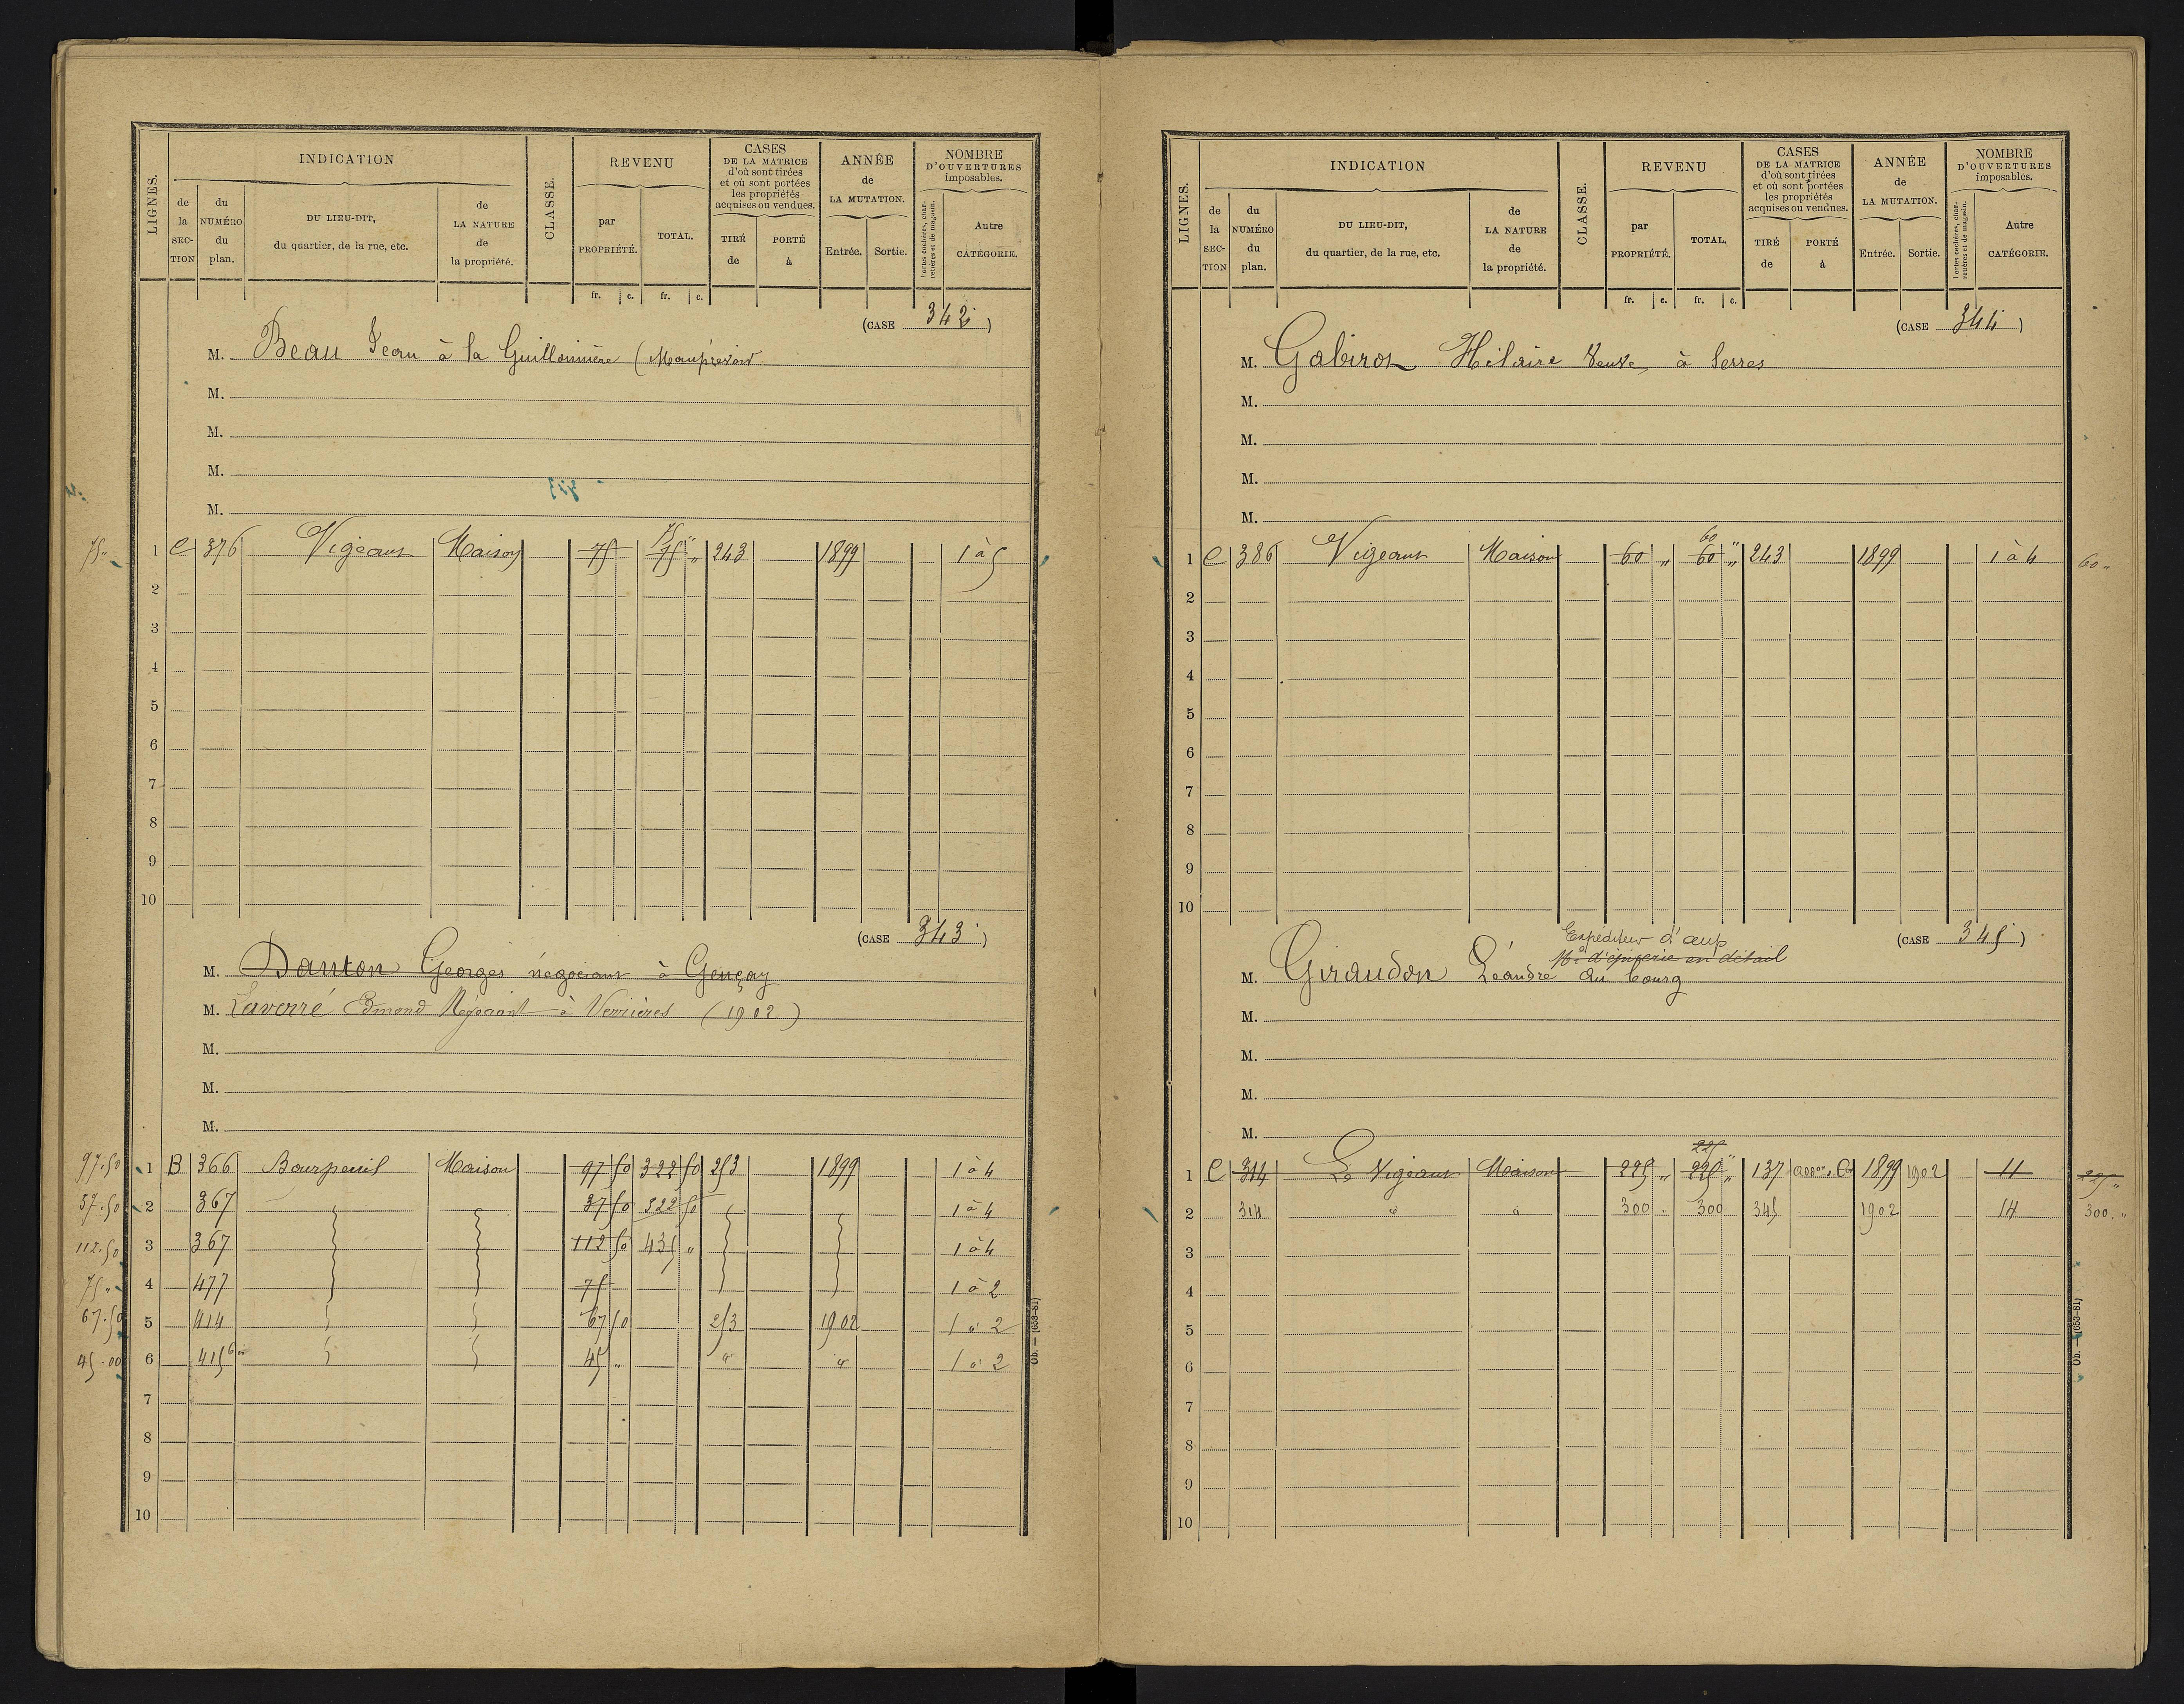 LIGNES.
INDICATION
de la SECTION
du NUMÉRO du plan.
DU LIEU-DIT, du quartier, de la rue, etc.
de LA NATURE de la propriété.
CLASSE.
REVENU
par PROPRIÉTÉ.
TOTAL.
fr. c. fr. c.
CASES DE LA MATRICE d'où sont tirées et où sont portées les propriétés acquises ou vendues.
TIRÉ de
PORTÉ à
ANNÉE de LA MUTATION.
Entrée. Sortie.
NOMBRE D'OUVERTURES imposables.
Portes cochères, charretières et de magasin.
Autre CATÉGORIE.
(CASE 342)
M. Beau Jean à la Guillonnière (Mauprévoir
M.
M.
M.
M.
75 " 1 C 376 Vigeant Maison 75 75 " 75 " 243 1899 1 à 5
2
3
4
5
6
7
8
9
10
(CASE 343)
M. Danton Georges négociant à Gençay
M. Laverré Edmond Négociant à Verrières (1902)
M.
M.
M.
97.50 1 B 366 Bourpeuil Maison 97 50 322 50 253 1899 1 à 4
37.50 2 367 37 50 322 50 1 à 4
112.50 3 367 112 50 435 " 1 à 4
75 " 4 477 75 1 à 2
67.50 5 414 67 50 253 1902 1 à 2
45.00 6 415 bis 45 " " " 1 à 2
7
8
9
10
Ob. — (653-81)
LIGNES.
INDICATION
de la SECTION
du NUMÉRO du plan.
DU LIEU-DIT, du quartier, de la rue, etc.
de LA NATURE de la propriété.
CLASSE.
REVENU
par PROPRIÉTÉ.
TOTAL.
fr. c. fr. c.
CASES DE LA MATRICE d'où sont tirées et où sont portées les propriétés acquises ou vendues.
TIRÉ de
PORTÉ à
ANNÉE de LA MUTATION.
Entrée. Sortie.
NOMBRE D'OUVERTURES imposables.
Portes cochères, charretières et de magasin.
Autre CATÉGORIE.
(CASE 344)
M. Gabiros Hilaire Veuve à Serres
M.
M.
M.
M.
1 C 386 Vigeant Maison 60 " 60 " 60 " 243 1899 1 à 4 60 "
2
3
4
5
6
7
8
9
10
(CASE 345)
Expéditeur d'œufs
Md d'épicerie en détail
M. Giraudon Léandre au bourg
M.
M.
M.
M.
225 "
1 C 314 Le Vigeant Maison 225 " 225 " 137 1899 1902 11 225 "
2 314 " " 300 " 300 345 1902 14 300 "
3
4
5
6
7
8
9
10
Ob. — (653-81)